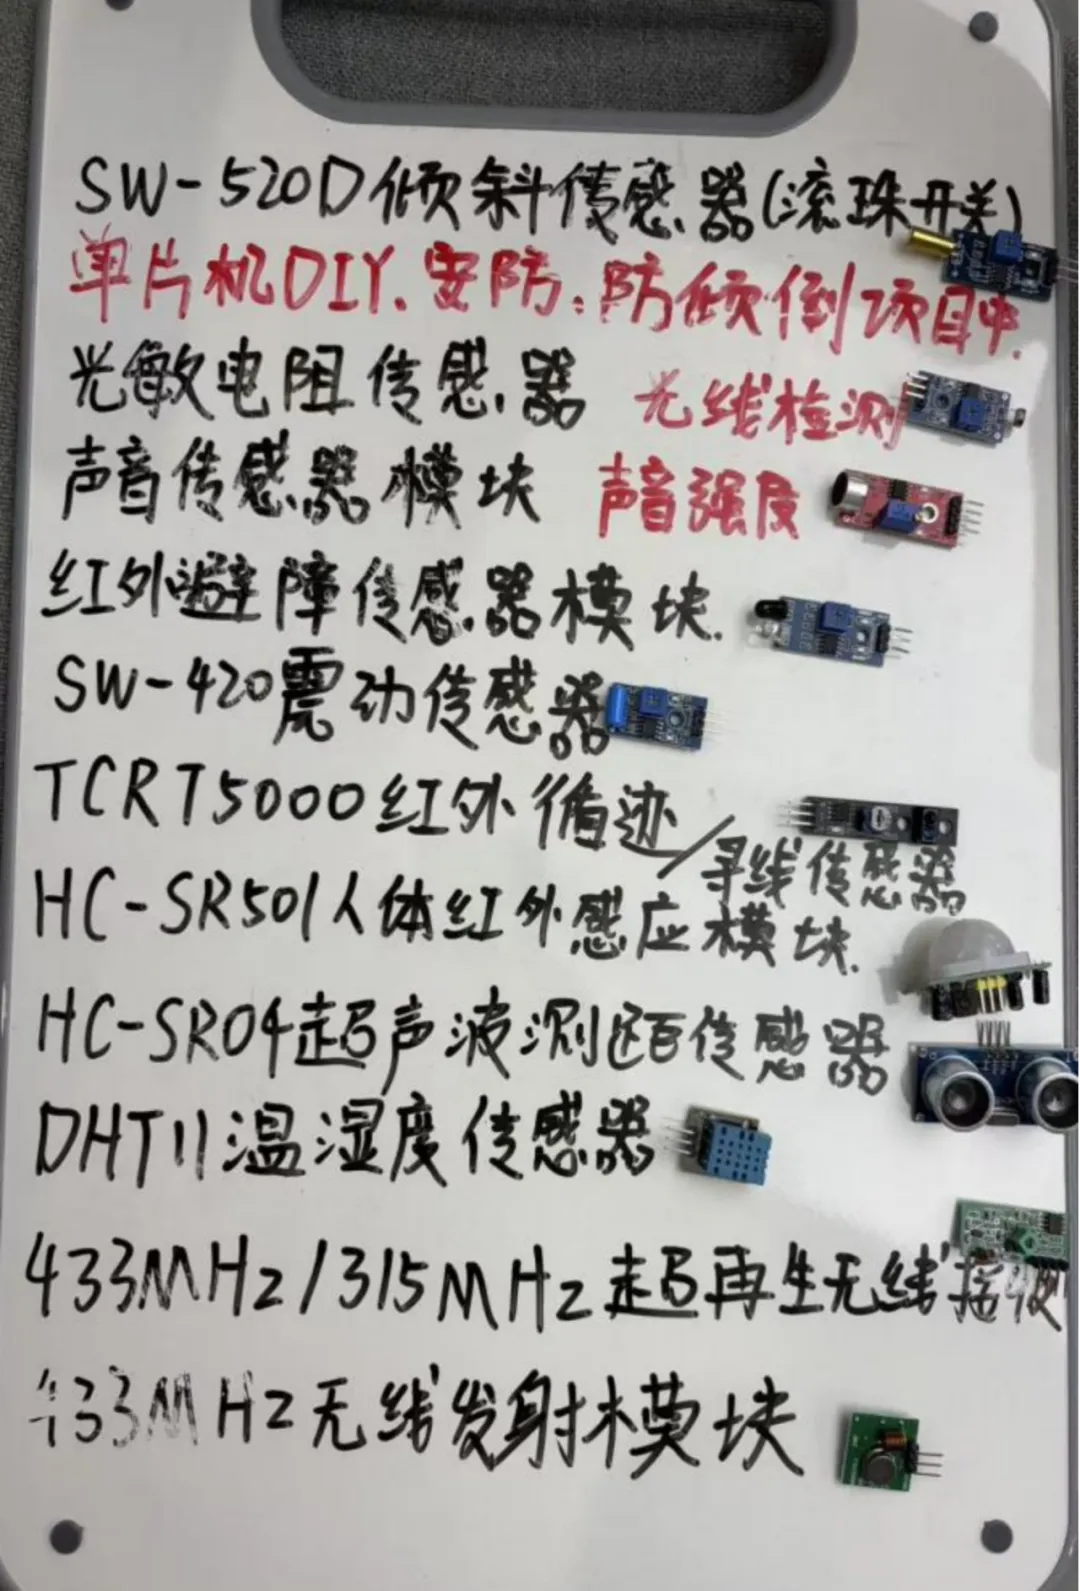 SW-520D倾斜传感器(滚珠开关)
单片机DIY.安防.防倾倒项目中.
光敏电阻传感器 光线检测
声音传感器模块 声音强度
红外避障传感器模块.
SW-420震动传感器
TCRT5000红外循迹/寻线传感器
HC-SR501人体红外感应模块.
HC-SR04超声波测距传感器
DHT11温湿度传感器
433MHz/315MHz超再生无线接收
433MHz无线发射模块